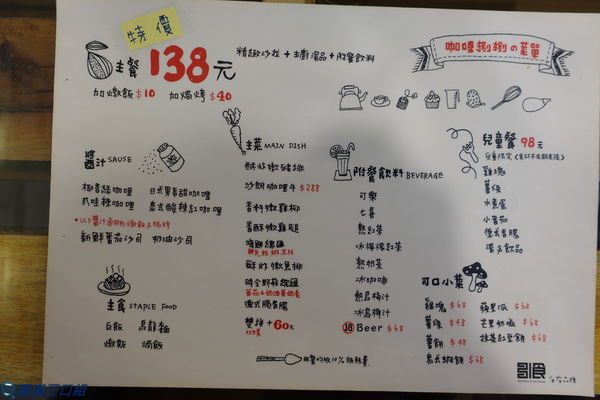 特價
主餐 138元
精緻沙拉+主廚湯品+附餐飲料
咖哩捌捌の菜單
加燉飯 $10 加焗烤 $40
醬汁 SAUSE
椰香綠咖哩 日式果香甜咖哩
爪哇辣咖哩 泰式酸辣紅咖哩
新鮮番茄沙司 奶油沙司
主食 STAPLE FOOD
白飯 烏龍麵
燉飯 焗飯
主菜 MAIN DISH
酥炸嫩豬排
沙朗咖哩牛 $288
香料嫩雞柳
香酥嫩雞腿
海鮮總匯
酥炸嫩魚排
時令野菜總匯
德式脆香腸
雙拼+60元
附餐飲料 BEVERAGE
可樂
七喜
熱紅茶
冰檸檬紅茶
熱奶茶
冰咖啡
熱烏梅汁
冰烏梅汁
18 Beer $68
兒童餐 98元
雞塊
薯條
水煮蛋
小番茄
德式香腸
湯&飲品
可口小菜
雞塊 $68 蘋果派 $68
薯條 $48 芒果奶酪 $68
薯餅 $48 抹茶紅豆餅 $68
泰式蝦餅 $68
用餐酌收10%服務費